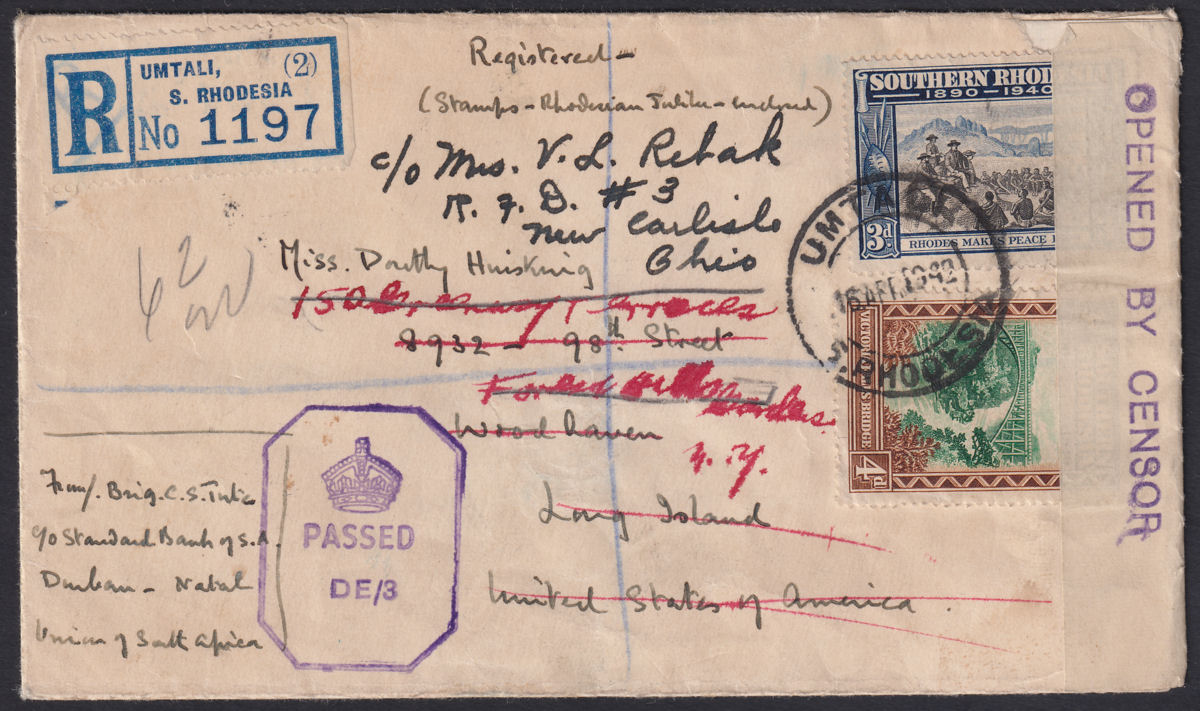 R
UMTALI, (2)
S. RHODESIA
No 1197
Registered-
(Stamps - Rhodesian Jubilee - enclosed)
c/o Mrs. V. L. Rebak
R. F. D. #3
New Carlisle
Ohio
Miss. Dorothy Huisking
150 Greenway Terraces
8932 - 98th Street
Forest Hills Gardens
Woodhaven
N.Y.
Long Island
United States of America.
SOUTHERN RHOD
1890 - 1940
3d
RHODES MAKES PEACE
UMTALI
16 APR 1942
S. RHODESIA
VICTORIA FALLS BRIDGE
4d
OPENED BY CENSOR
PASSED
DE/3
From/. Brig. C. S.
c/o Standard Bank of S.A.
Durban - Natal
Union of South Africa